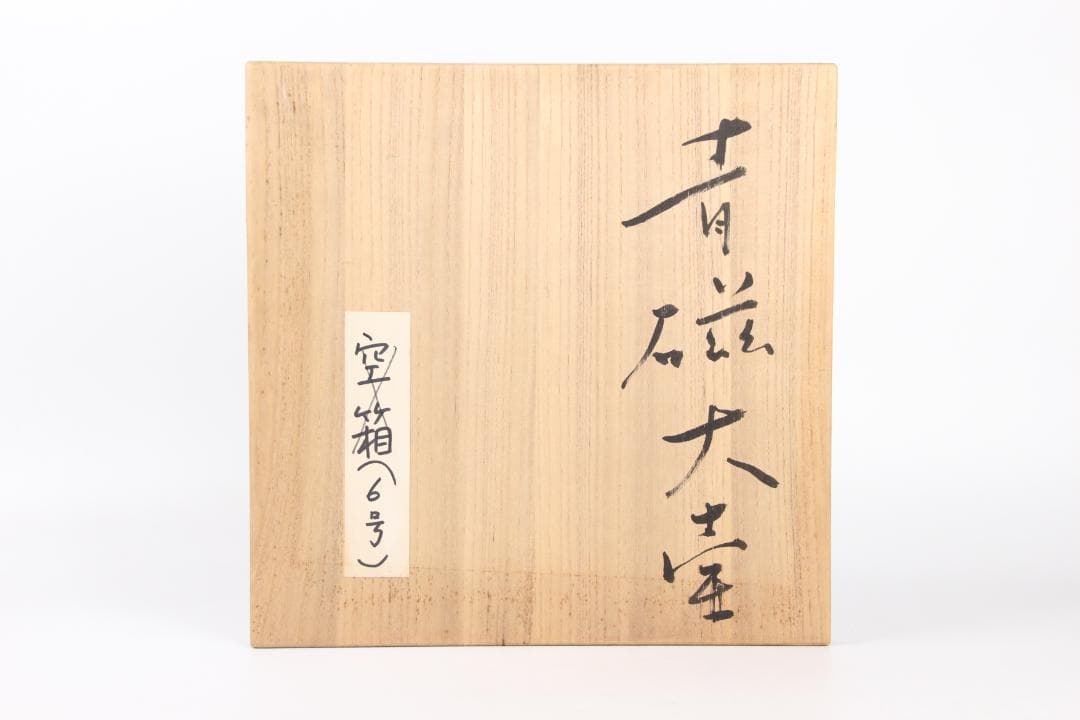 青磁大壷
空箱(6号)